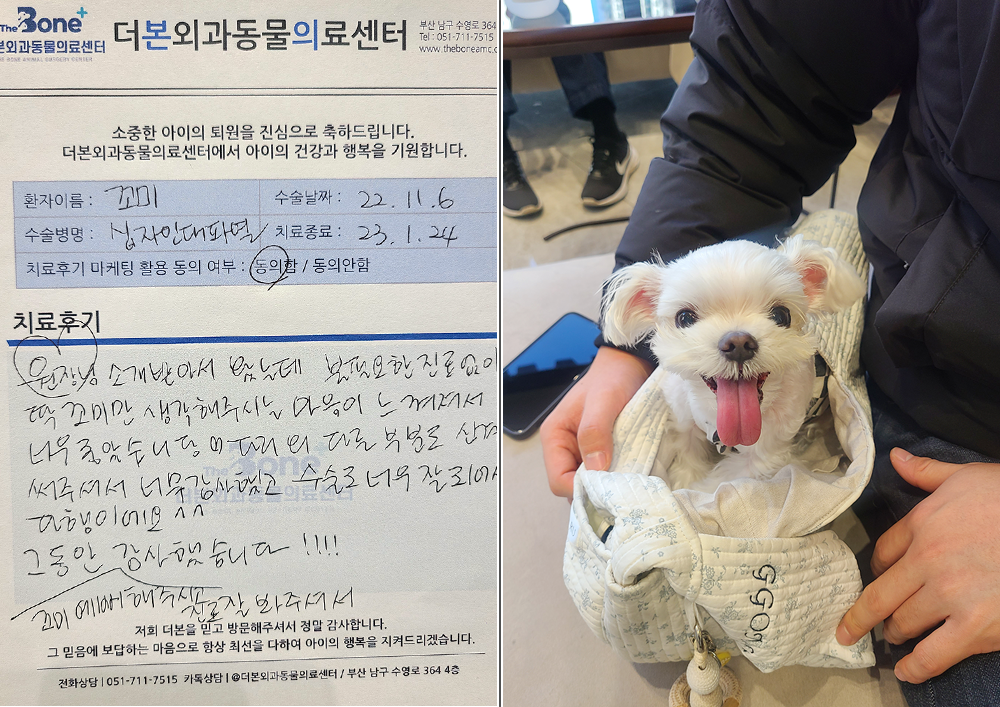 The Bone+
본외과동물의료센터
THE BONE ANIMAL SURGERY CENTER
더본외과동물의료센터
부산 남구 수영로 364
Tel : 051-711-7515
www.theboneamc.c
소중한 아이의 퇴원을 진심으로 축하드립니다.
더본외과동물의료센터에서 아이의 건강과 행복을 기원합니다.
환자이름 : 꼬미 수술날짜 : 22.11.6
수술병명 : 십자인대파열 치료종료 : 23.1.24
치료후기 마케팅 활용 동의 여부 : 동의함 / 동의안함
치료후기
원장님 소개받아서 왔는데 불필요한 진료없이
딱 꼬미만 생각해주시는 마음이 느껴져서
너무 좋았습니당 다리 외 다른 부분도 신경
써주셔서 너무 감사했고 수술도 너무 잘 되어서
다행이에요 ^^
그동안 감사했습니다 !!!!
꼬미 예뻐해주시고 진료 잘 봐주셔서
The Bone+
더본외과동물의료센터
저희 더본을 믿고 방문해주셔서 정말 감사합니다.
그 믿음에 보답하는 마음으로 항상 최선을 다하여 아이의 행복을 지켜드리겠습니다.
전화상담 | 051-711-7515 카톡상담 | @더본외과동물의료센터 / 부산 남구 수영로 364 4층
ggom